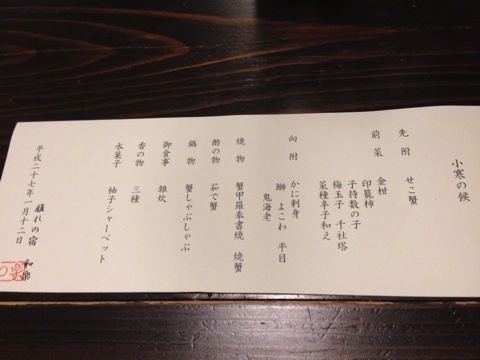 小寒の候
先附 せこ蟹
前菜 金柑
印籠柿
子持数の子
梅玉子 千社塔
菜種辛子和え
向附 かに刺身
鰤 よこわ 平目
鬼海老
焼物 蟹甲羅奉書焼 焼蟹
酢の物 茹で蟹
鍋物 蟹しゃぶしゃぶ
御食事 雑炊
香の物 三種
水菓子 柚子シャーベット
平成二十七年一月十二日
離れの宿 和楽